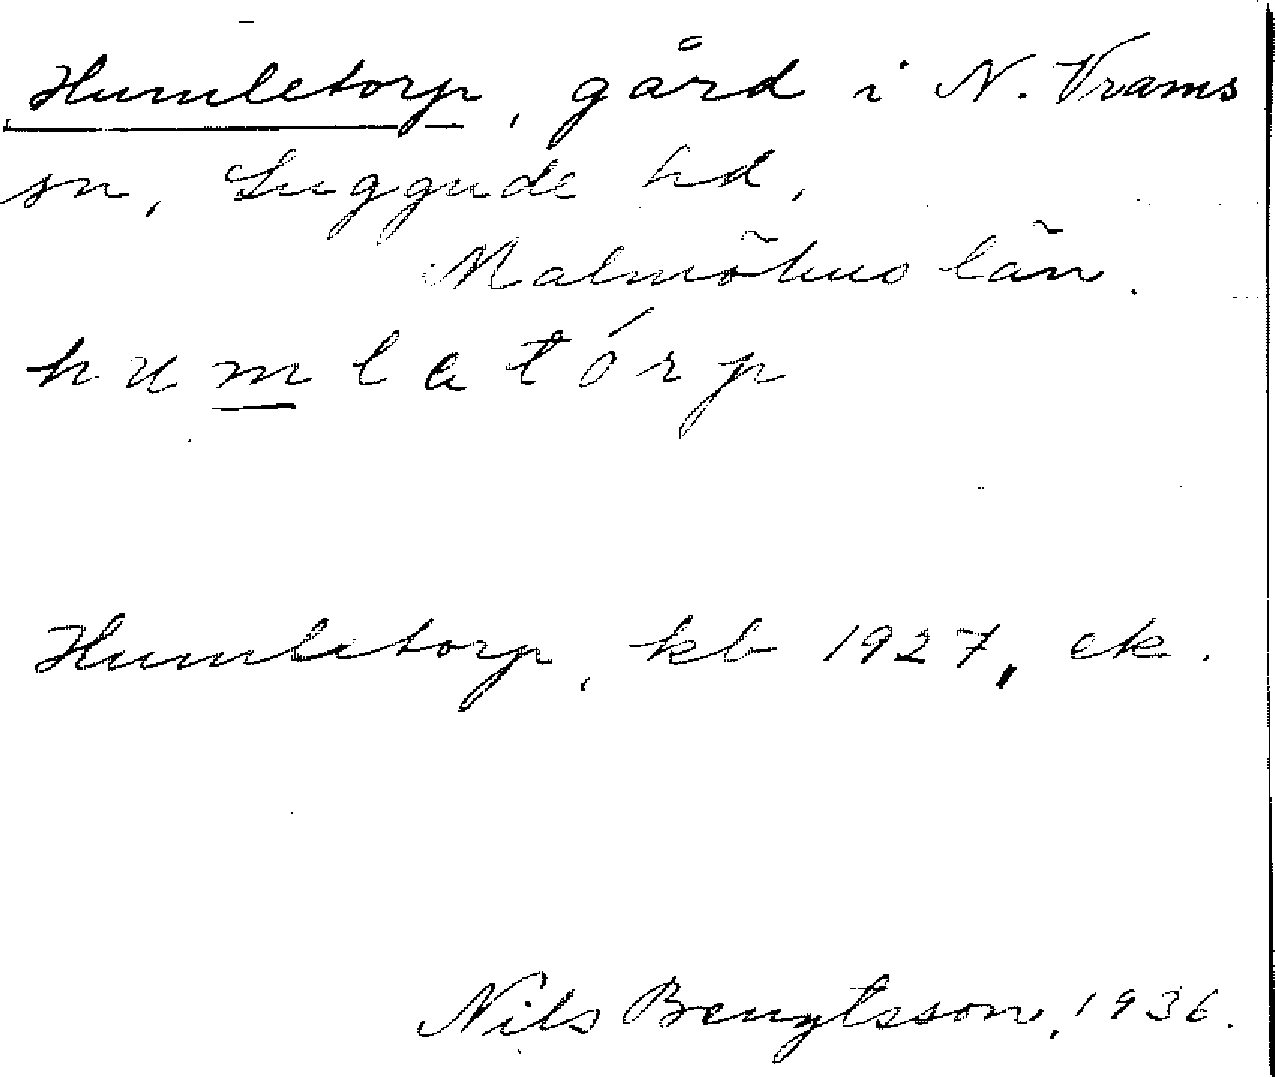 Humletorp, gård i N. Vrams
sn, Luggude hd,
Malmöhus län.
humlatórp
Humletorp, kb 1927, ek.
Nils Bengtsson, 1936.